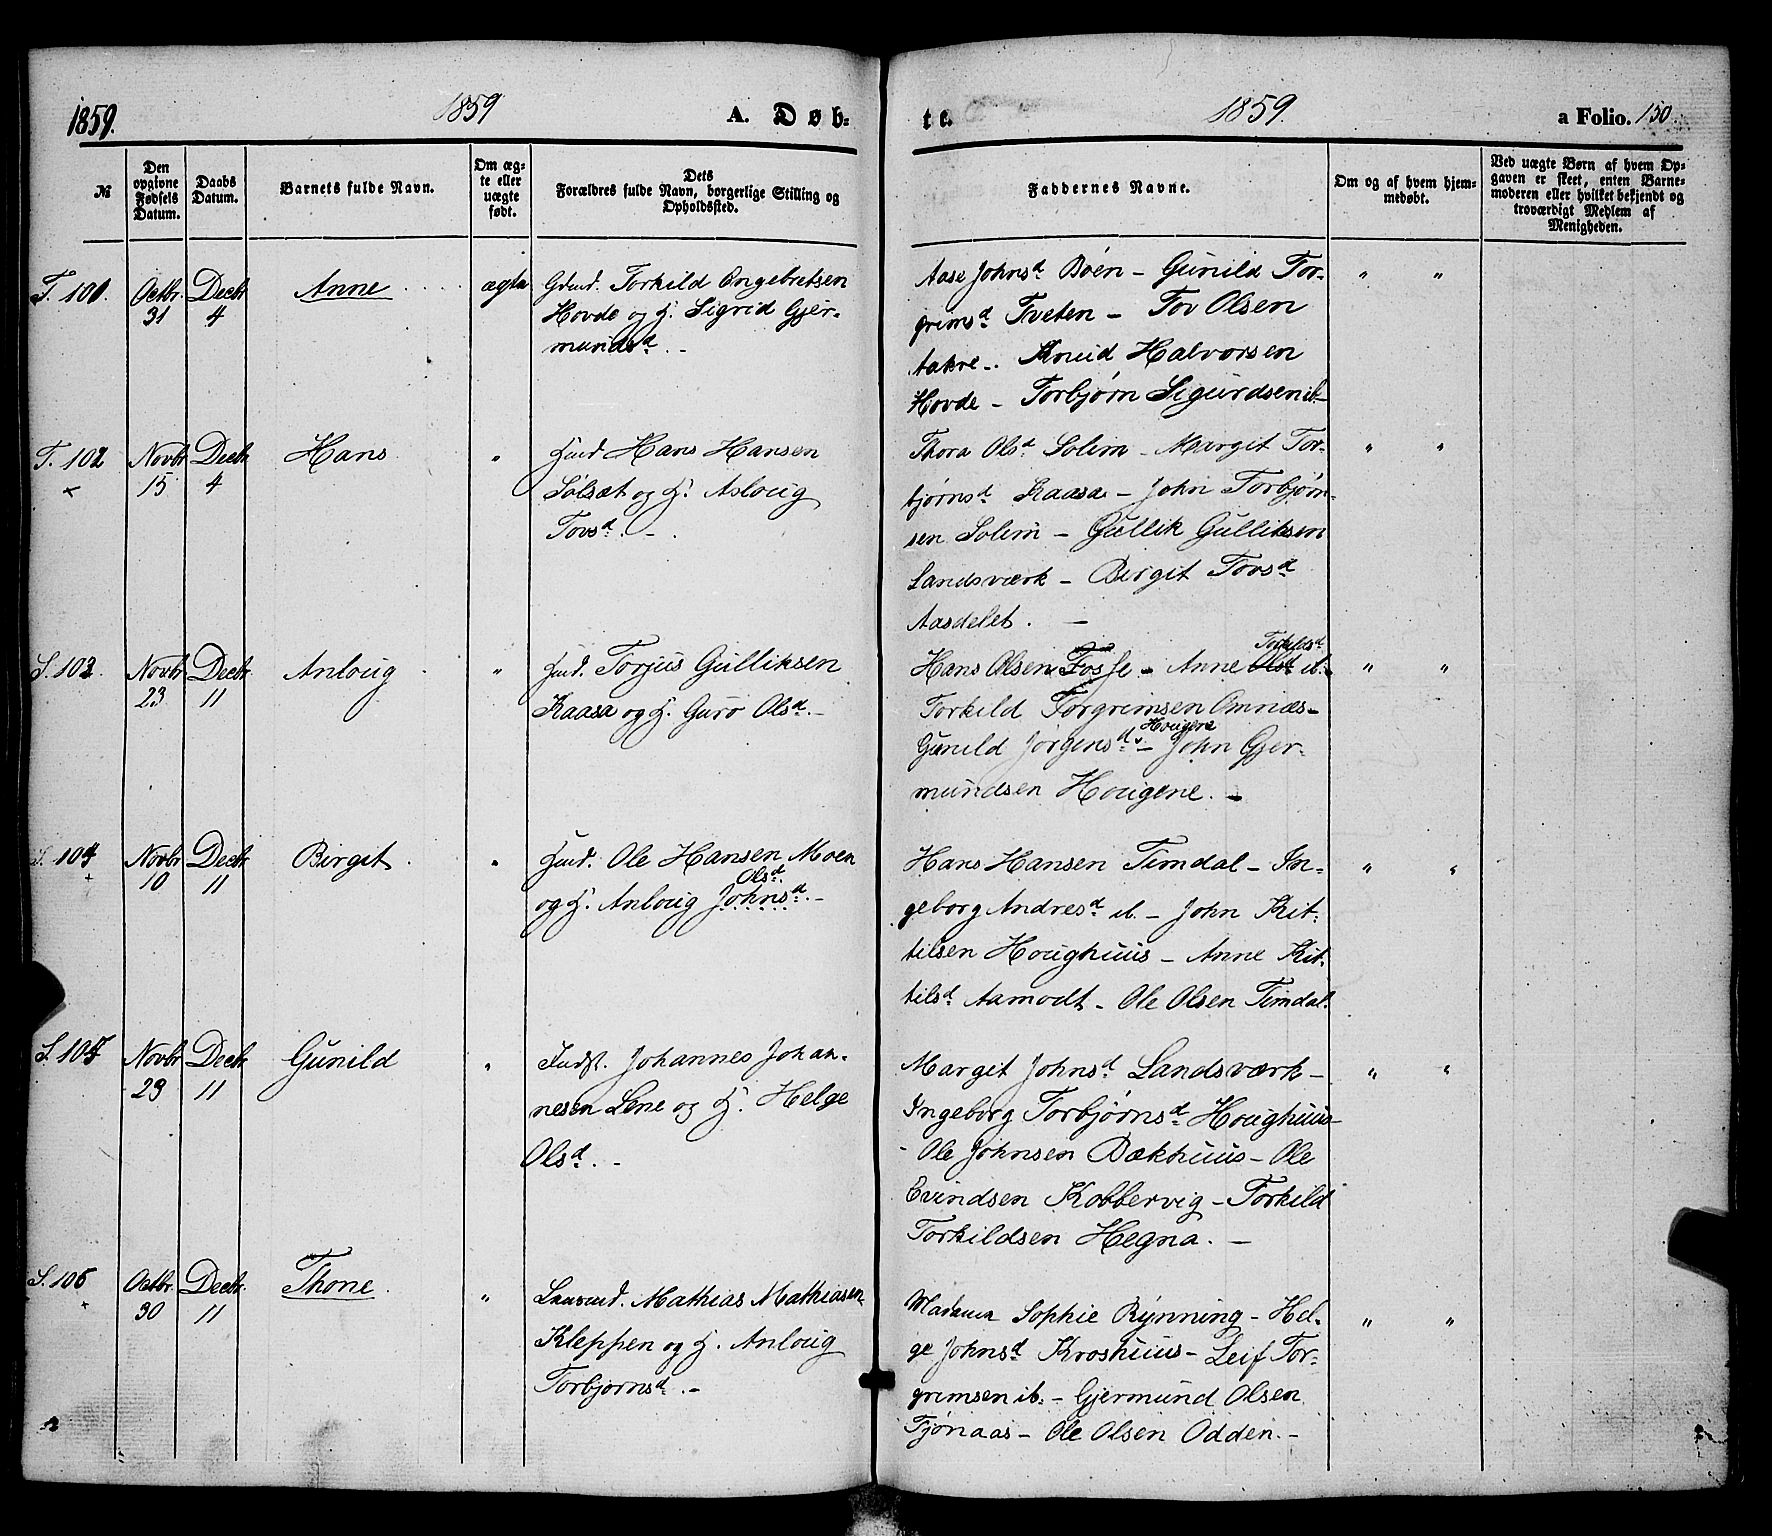 1859.
1859
A. Døb-
te.
1859.
a Folio. 150.
№
Den opgivne Fødsels Datum.
Daabs Datum.
Barnets fulde Navn.
Om ægte eller uægte født.
Dets
Forældres fulde Navn, borgerlige Stilling og
Opholdssted.
Faddernes Navne.
Om og af hvem hjem-
medøbt.
Ved uægte Børn af hvem Op-
gaven er skeet, enten Barne-
moderen eller hvilket bekjendt og
troværdigt Medlem af
Menigheden.
T. 101. Octbr. 31 Decbr 4 Anne ægte
Gdmd. Torkild Engebretsen
Hovde og H. Sigrid Gjer-
mundsd. -
Aase Johnsd. Bøen - Gunild Tor-
grimsd. Tveten - Tov Olsen
Aakre -. Knud Halvorsen
Hovde - Torbjørn Sigurdsen ib -
" "
T. 102 x Novbr 15 Decbr 4 Hans "
Hmd Hans Hansen
Solsæt og H. Asloug
Tovsd. -
Thora Olsd. Solem - Margit Tor-
bjørnsd. Kaasa - John Torbjørn-
sen Solem - Gullik Gulliksen
Landsværk - Birgit Tovsd.
Aasdelet. -
" "
S. 103. Novbr 23 Decbr 11 Anloug "
Hmd. Torjus Gulliksen
Kaasa og H. Guro Olsd. -
Torkildsd.
Hans Olsen Fosse - Anne Olsd. ib. -
Torkild Torgrimsen Omnæs -
Hougene
Gunild Jørgensd. - John Gjer-
mundsen Hougene. -
" "
S. 104 + Novbr 10 Decbr 11 Birgit "
Hmd. Ole Hansen Moen
Olsd.
og H. Anloug Johnsd. -
Hans Hansen Timdal - In-
geborg Andresd. ib. - John Kit-
tilsen Houghuus - Anne Kit-
tilsd. Aamodt - Ole Olsen Timdal.
" "
S. 105 Novbr 29 Decbr 11 Gunild "
Indst. Johannes Johan-
nesen Lene og H. Helge
Olsd. -
Marget Johnsd. Landsværk -
Ingeborg Torbjørnsd. Houghuus -
- Ole Johnsen Bækhuus - Ole
Evindsen Kobbervig - Torkild
Torkildsen Hegna. -
" "
S. 106 + Octbr. 30 Decbr. 11 Thone "
Mathias Mathiasen
Kleppen og H. Anloug
Torbjørnsd. -
Madame Sophie Rynning - Hel-
ge Johnsd. Kroshuus - Leif Tor-
grimsen ib. - Gjermund Olsen
Tjønaas - Ole Olsen Odden. -
" "